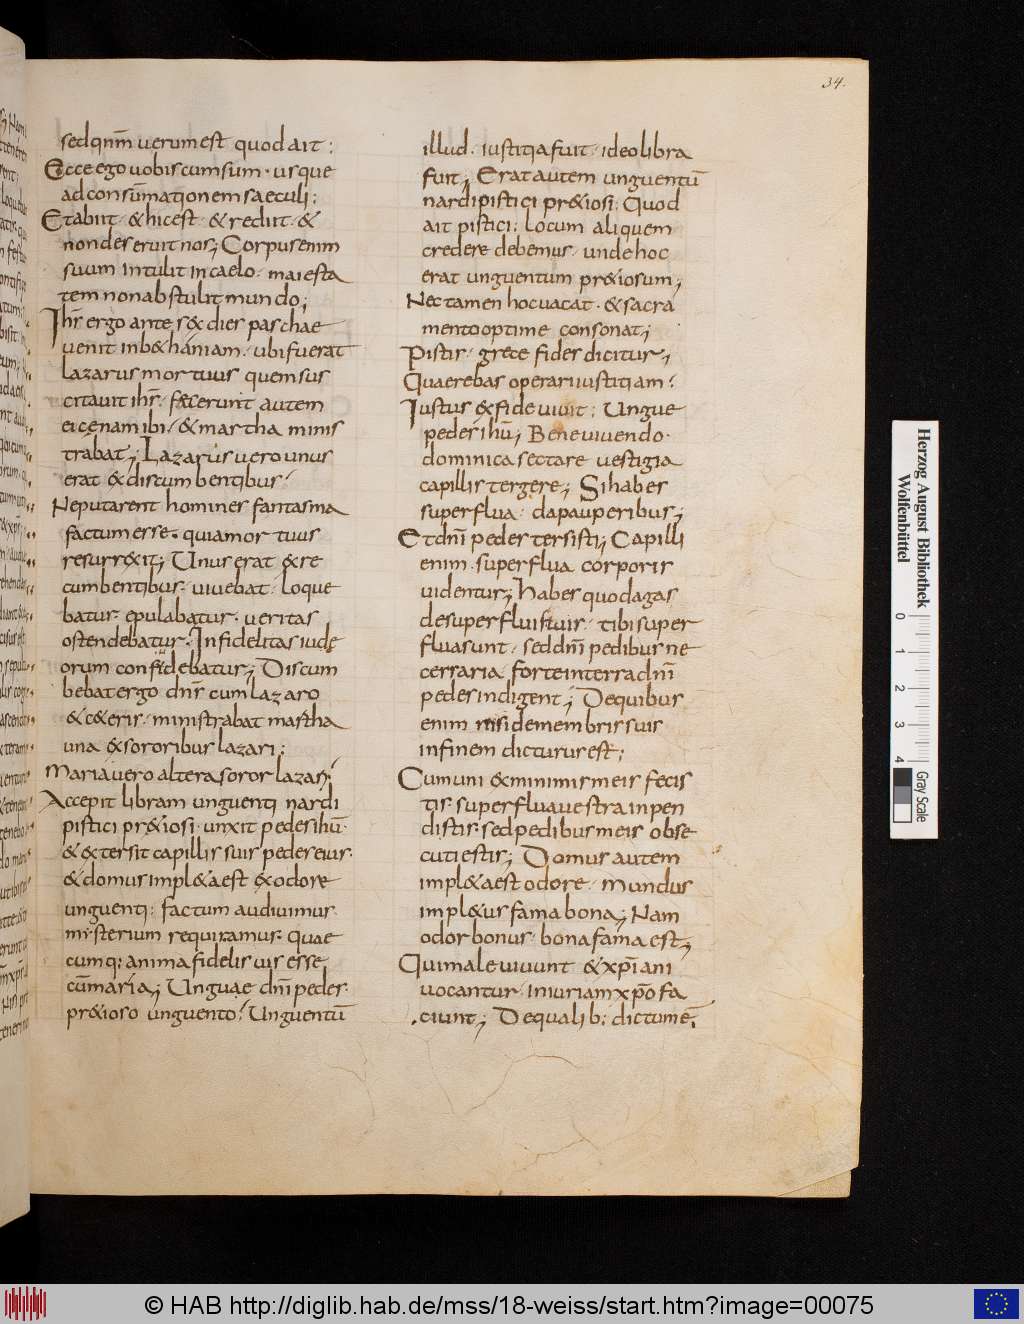 34.
sedqnm̅ uerumest quodait:
Ecce ego uobiscumsum· usque
adconsum̅ationemsaeculi:
Etabiit· & hicest· & rediit· &
nondeseruit nos; Corpusenim
suum intulit incaelo· maiesta
tem nonabstulit mundo;
Ihs̅ ergo ante sex dies paschae
uenit inb&haniam· ubifuerat
lazarus mortuus quemsus
citauit ihs̅· fecerunt autem
ei cęnam ibi· & martha minis
trabat; Lazarus uero unus
erat ex discumbentibus·
Neputarent homines fantasma
factum esse· quia mortuus
resurrexit; Unus erat ex re
cumbentibus· uiuebat· loque
batur· epulabatur· ueritas
ostendebatur· Infidelitas iudę
orum confundebatur; Discum
bebat ergo dns̅ cum lazaro
& c&eris· ministrabat martha
una ex sororibus lazari:
Maria uero altera soror lazari;
Accepit libram unguenti nardi
pistici pr&iosi· unxit pedes ihu̅·
& extersit capillis suis pedes eius·
& domus impl&a est ex odore
unguenti: factum audiuimus·
mysterium requiramus· quae
cumq: anima fidelis uis esse
cum̅ maria; Unguae dni̅ pedes·
pr&ioso unguento· Unguentu̅
illud· iustitia fuit· ideo libra
fuit; Erat autem unguentu̅
nardi pistici pr&iosi· Quod
ait pistici: Locum aliquem
credere debemus· unde hoc
erat unguentum pr&iosum;
Nec tamen hoc uacat· & sacra
mento optime consonat;
Pistis· grece fides dicitur;
Quaerebas operari iustitiam?
Iustus ex fide uiuit: Ungue
pedes ihu̅; Bene uiuendo·
dominica sectare uestigia
capillis tergere; Si habes
superflua· da pauperibus;
Et dni̅ pedes tersisti; Capilli
enim· superflua corporis
uidentur; Habes quod agas
de superfluis tuis· tibi super
flua sunt· sed dni̅ pedibus ne
cessaria forte in terra dni̅
pedes indigent; De quibus
enim nisi de membris suis
in finem dicturus est;
Cum uni ex minimis meis fecis
tis superflua uestra inpen
distis· sed pedibus meis obse
cuti estis; Domus autem
impl&a est odore· mundus
impl&us fama bona; Nam
odor bonus· bona fama est;
Qui male uiuunt & xpi̅ani
uocantur· iniuriam xpo̅ fa
ciunt; De qualib: dictum ē;
Herzog August Bibliothek
Wolfenbüttel
0 1 2 3 4
Gray Scale
© HAB http://diglib.hab.de/mss/18-weiss/start.htm?image=00075